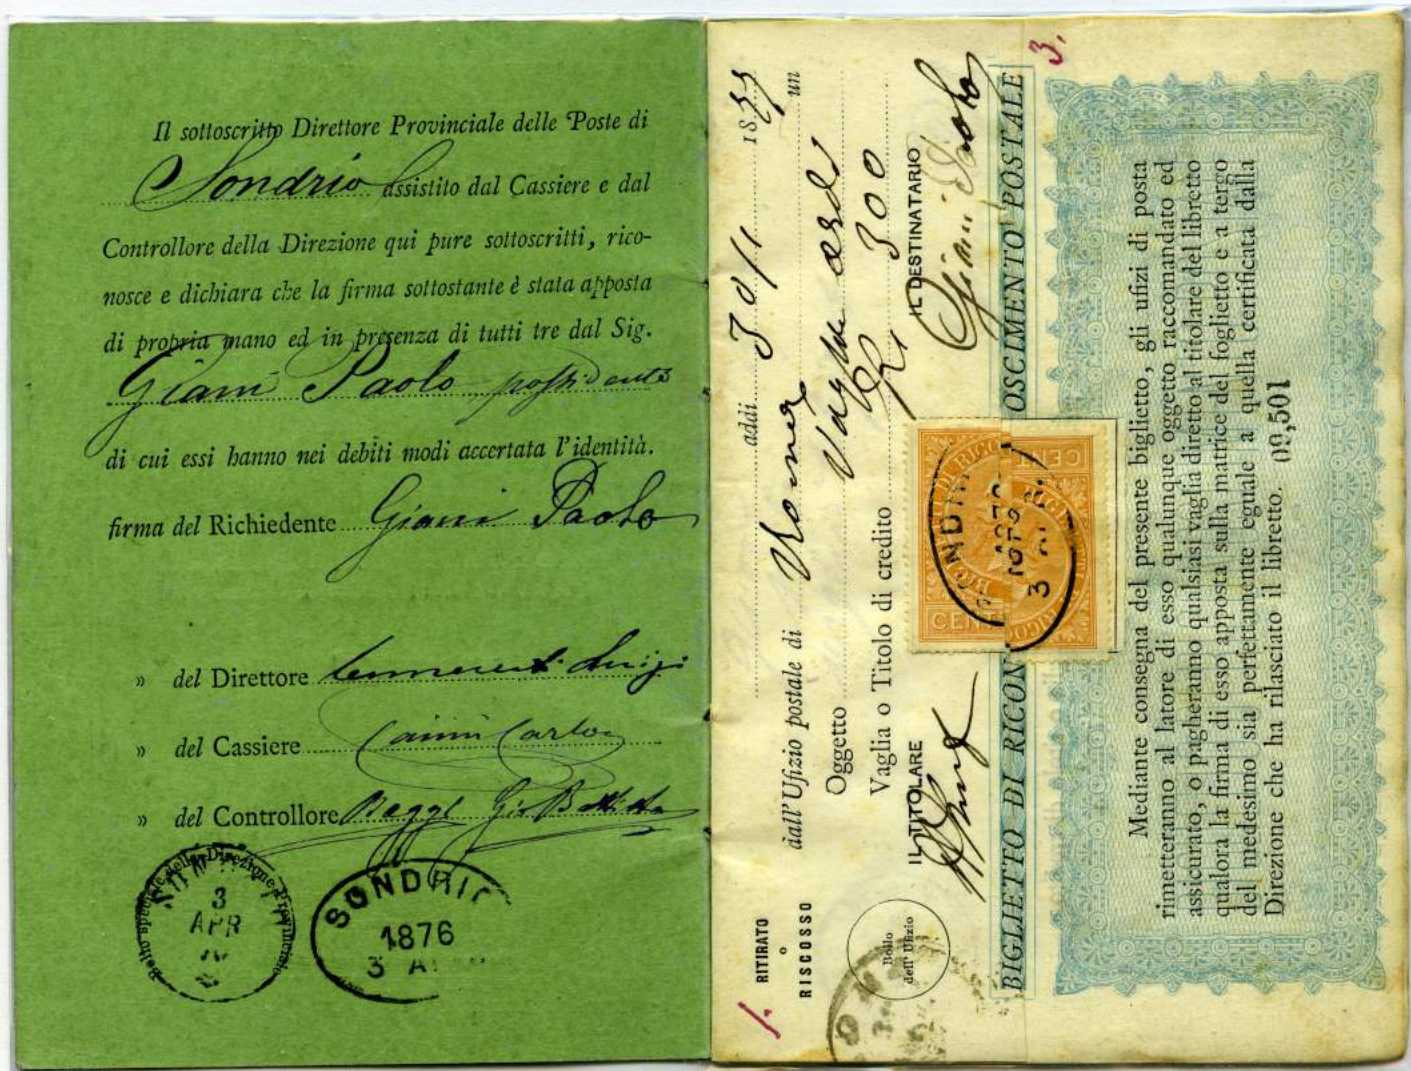 Il sottoscritto Direttore Provinciale delle Poste di
Sondrio assistito dal Cassiere e dal
Controllore della Direzione qui pure sottoscritti, rico-
nosce e dichiara che la firma sottostante è stata apposta
di propria mano ed in presenza di tutti tre dal Sig.
Giani Paolo possidente
di cui essi hanno nei debiti modi accertata l'identità.
firma del Richiedente Giani Paolo
» del Direttore Luigi
» del Cassiere Carlo
» del Controllore
Bollo speciale della Direzione Provinciale
3
APR
SONDRIO
1876
3 A
1.
RITIRATO
o
RISCOSSO
addì 30/1 18 un
dall'Ufizio postale di Roma
Oggetto Vaglia
Vaglia o Titolo di credito 300
IL TITOLARE
IL DESTINATARIO
Giani Paolo
Bollo
dell'Ufizio
ROMA
3.
BIGLIETTO DI RICON OSCIMENTO POSTALE
DI RICO
CENT
CENT
RICO
SONDRIO
3 AP
Mediante consegna del presente biglietto, gli ufizi di posta
rimetteranno al latore di esso qualunque oggetto raccomandato ed
assicurato, o pagheranno qualsiasi vaglia diretto al titolare del libretto
qualora la firma di esso apposta sulla matrice del foglietto e a tergo
del medesimo sia perfettamente eguale a quella certificata dalla
Direzione che ha rilasciato il libretto. 09,501